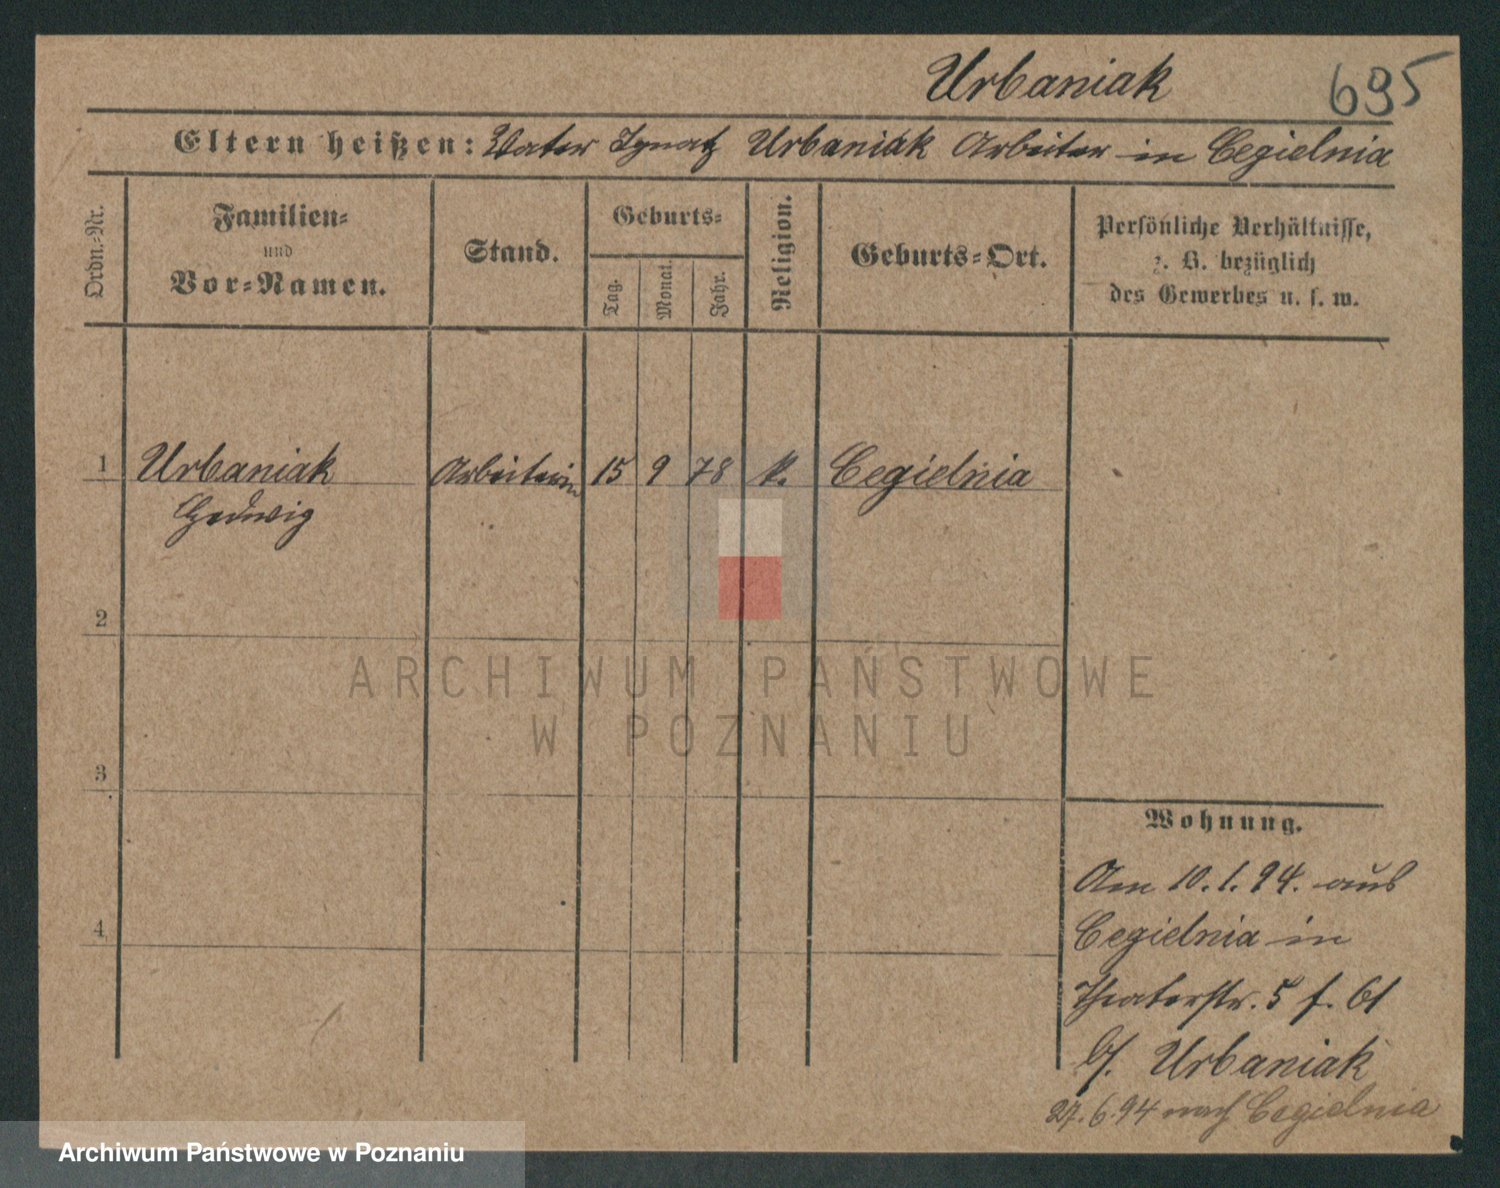 Urbaniak 695
Eltern heißen: Vater Ignatz Urbaniak Arbeiter in Cegielnia
Ordn.-Nr.
Familien-
und
Vor-Namen.
Stand.
Geburts-
Tag.
Monat.
Jahr.
Religion.
Geburts-Ort.
Persönliche Verhältnisse,
z. B. bezüglich
des Gewerbes u. s. w.
1 Urbaniak Arbeiterin 15 9 78 k. Cegielnia
Hedwig
2
3
4
ARCHIWUM PAŃSTWOWE
W POZNANIU
Wohnung.
Am 10.1.94. aus
Cegielnia in
Theaterstr. 5 f. 61
b/. Urbaniak
27.6.94 nach Cegielnia
Archiwum Państwowe w Poznaniu